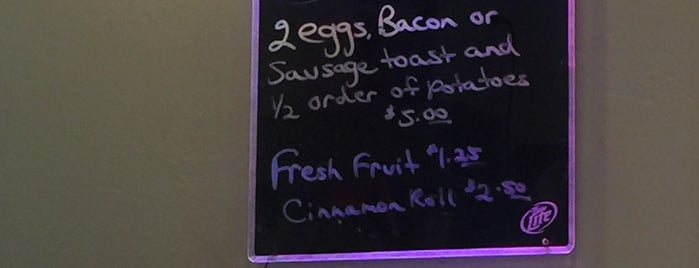 2 eggs, Bacon or
Sausage toast and
1/2 order of potatoes
$5.00
Fresh Fruit $1.25
Cinnamon Roll $2.50
Lite